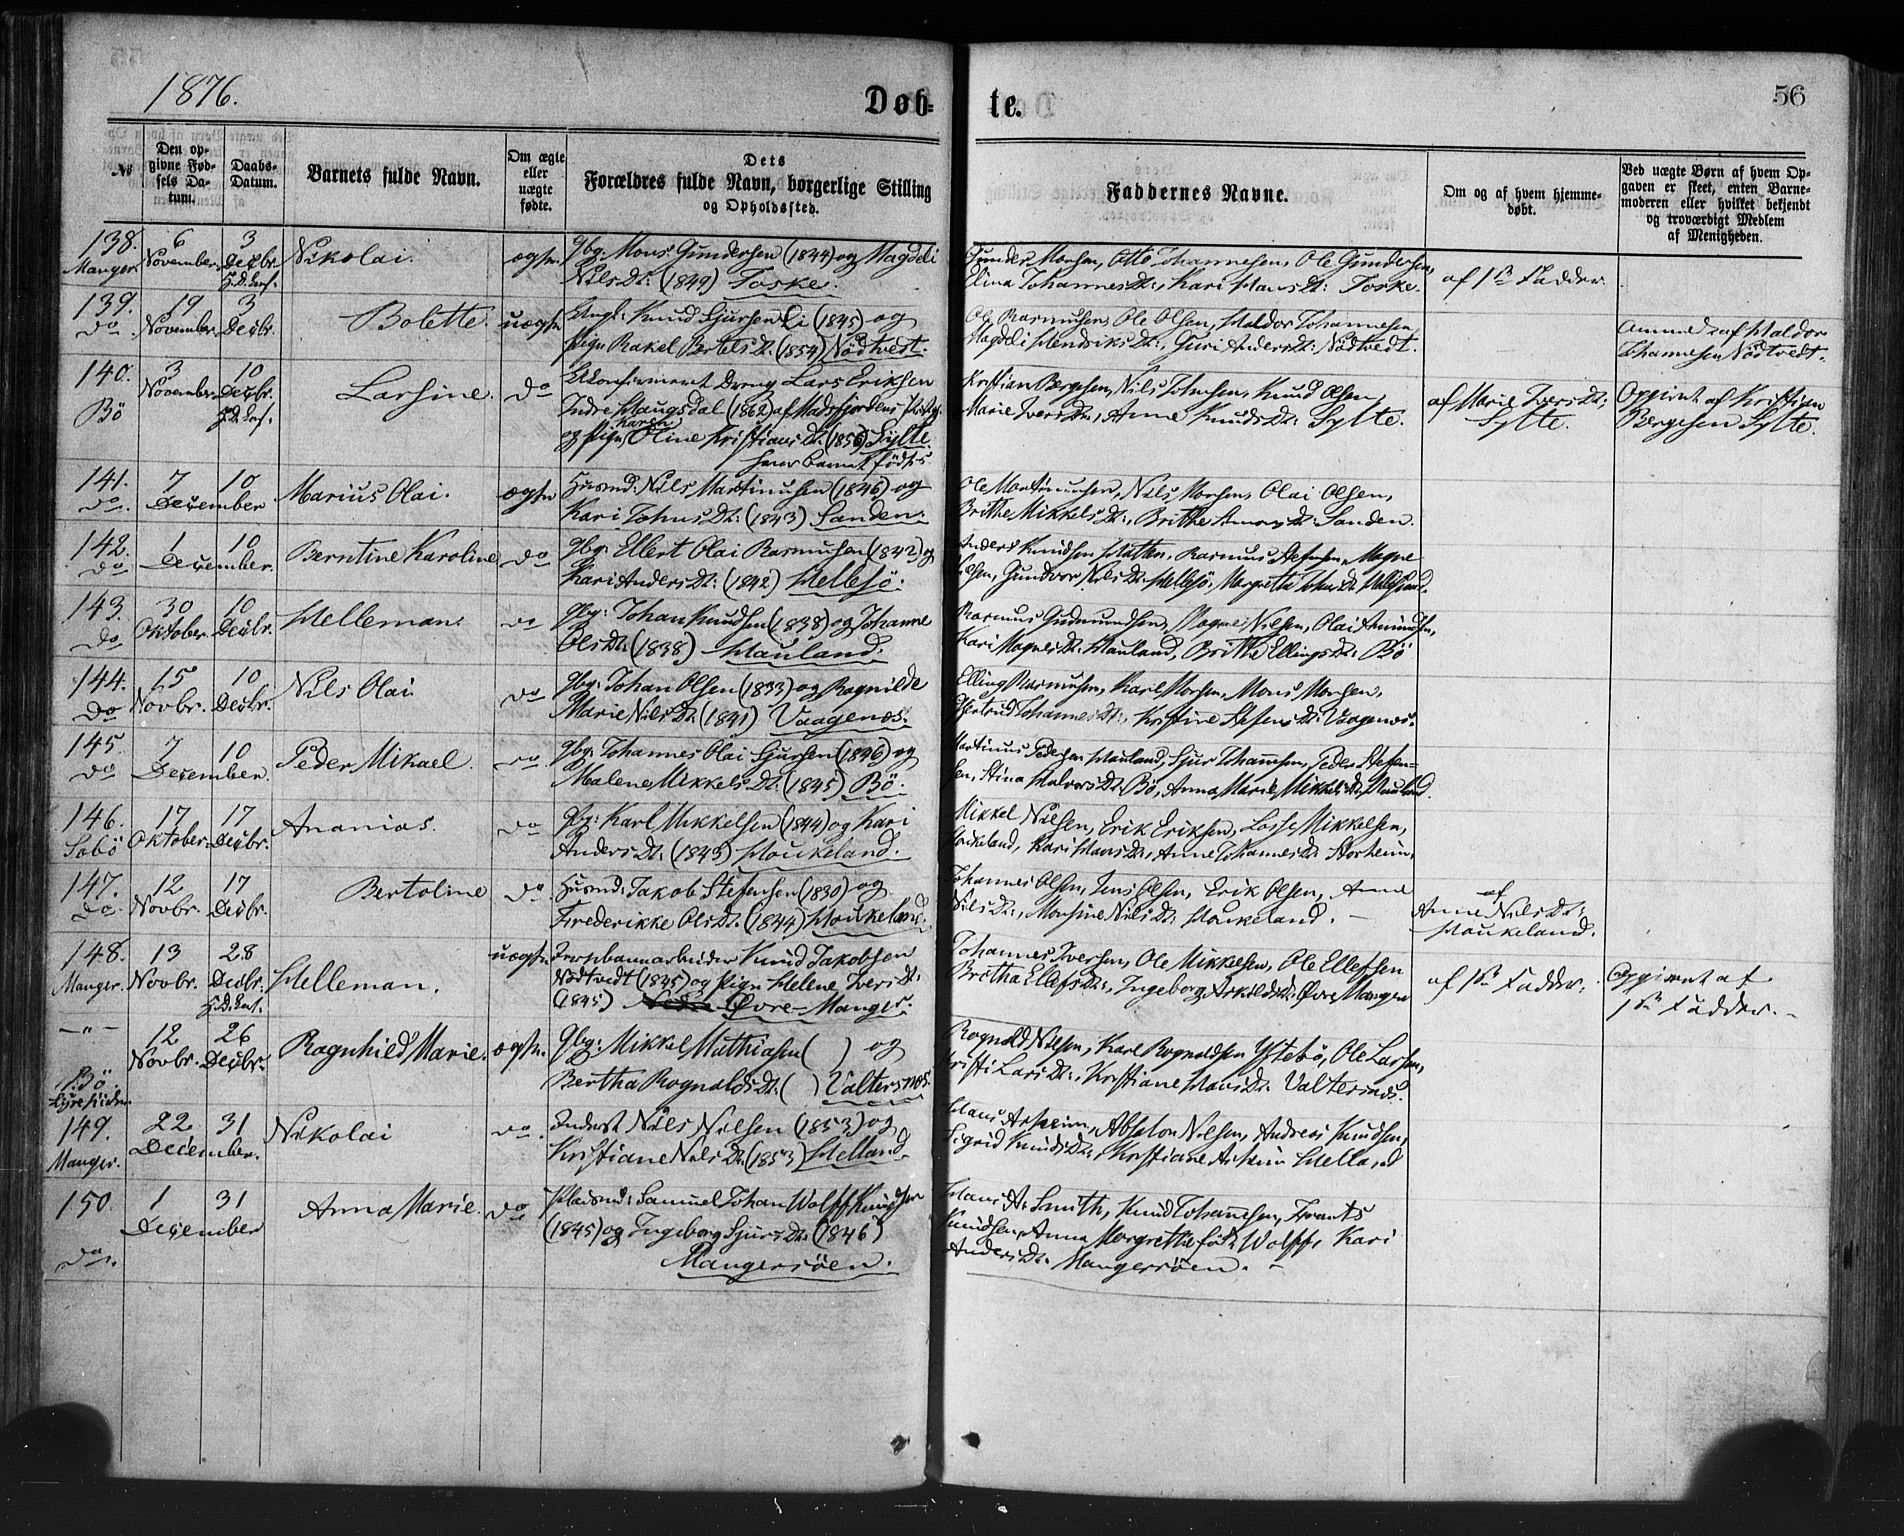 1876.
Døb-
te.
56
№
Den op-
givne Fød-
sels Da-
tum.
Daabs-
Datum.
Barnets fulde Navn.
Om ægte
eller
uægte
fødte.
Dets
Forældres fulde Navn, borgerlige Stilling
og Opholdssted.
Faddernes Navne.
Om og af hvem hjemme-
døbt.
Ved uægte Børn af hvem Op-
gaven er skeet, enten Barne-
moderen eller hvilket bekjendt
og troværdigt Medlem
af Menigheden.
138. 6 3
Manger. November. Decbr.
Nikolai. ægte.
Gbg: Mons Gundersen (1844) og Magdeli
Nils Dt: (1849) Toske.
Gunder Monsen, Otto Johannesen, Ole Gundersen,
Elina Johannes Dt:, Kari Hans Dt: Toske.
af 1ste Fadder.
139. 19 3
do November. Decbr.
Bolette. uægte
Ungk: Knud Sjursen Li (1845) og
Pige Rakel Bertels Dt: (1854) Nödtvedt.
Ole Rasmusen, Ole Olsen, Haldor Johannesen,
Magdeli Hendriks Dt:, Guri Anders Dt: Nödtvedt.
Anmeldt af Haldor
Johannesen Nödtvedt.
140. 3 10
Bö November. Decbr.
Larsine. do
Ukonfirmert Dreng Lars Eriksen
Indre Haugsdal (1862) af Masfjordens
og Pige Karen Oline Kristians Dt: (1856) Sylte.
hvor barnet födtes
Kristian Bergesen, Nils Johnsen, Knud Olsen,
Marie Ivers Dt:, Anne Knuds Dt: Sylte.
af Marie Ivers Dt:
Sylte.
Opgivet af Kristian
Bergesen Sylte.
141. 7 10
do. December
Marius Olai. ægte
Husmd: Nils Martinusen (1846) og
Kari Johns Dt: (1843) Sanden.
Ole Martinussen, Nils Monsen, Olai Olsen,
Brithe Mikkels Dt:, Brithe Dt: Sanden.
142. 1 10
do December.
Berntine Karoline do
Gbg: Ellert Olai Rasmusen (1842) og
Kari Anders Dt: (1842) Hellesö.
Anders Knudsen Hatten, Rasmus Stefensen, Magne
Olsen, Gundvor Nils Dt: Hellesö, Margrethe Dt:
143. 30 10
do Oktober. Decbr.
Helleman. do
Gbg: Johan Knudsen (1838) og Johanne
Ols Dt: (1838) Hauland.
Rasmus Gudmundsen, Magne Nilsen, Olai Amundsen,
Kari Magnes Dt: Hauland, Brithe Ellings Dt: Bö
144. 15 10
do Novbr. Decbr.
Nils Olai do
Gbg: Johan Olsen (1833) og Ragnilde
Marie Nils Dt: (1841) Vaagenes.
Elling Rasmusen, Karl Monsen, Mons Monsen,
Gjertrud Johannes Dt:, Kristine Stefens Dt: Vaagenes.
145. 7 10
do December.
Peder Mikael. do
Gbg: Johannes Olai Sjursen (1846) og
Malene Mikkels Dt: (1845) Bö.
Martinus Pedersen Hauland, Sjur Johannesen, Peder Stefen-
sen, Stina Halvors Dt: Bö, Anna Marie Mikkels Dt: Hauland.
146. 17 17
Sæbö Oktober. Decbr.
Ananias. do
Gbg: Karl Mikkelsen (1844) og Kari
Anders Dt: (1843) Haukeland.
Mikkel Nilsen, Erik Eriksen, Lasse Mikkelsen,
Haukeland, Kari Hans Dt:, Anne Johannes Dt: Storheim.
147. 12 17
do. Novbr. Decbr.
Bertoline do
Husmd: Jakob Stefensen (1830) og
Frederikke Ols Dt: (1844) Haukeland.
Johannes Olsen, Jens Olsen, Erik Olsen, Anne
Nils Dt:, Monsine Nils Dt: Haukeland. –
af
Anne Nils Dt:
Haukeland.
148. 13 28
Manger. Novbr. Decbr.
Helleman. uægte
Jernbanearbeider Knud Jakobsen
Nödtvedt (1845) og Pige Helene Ivers Dt:
(1845) Øvre Manger.
Johannes Iversen, Ole Mikkelsen, Ole Ellefsen
Britha Ellefs Dt:, Ingeborg Askilds Dt: Øvre Manger
af 1ste Fadder.
Opgivet af
1ste Fadder. –
–"– 12 26
Novbr. Decbr.
Bö
Ragnhild Marie. ægte.
Gbg: Mikkel Mathiasen ( ) og
Bertha Rognalds Dt: ( ) Valtersnes.
Rognald Nilsen, Karl Rognaldsen Ystebö, Ole Larsen,
Kristi Lars Dt:, Kristiane Hans Dt: Valtersnes.
149. 22 31
Manger. December.
Nikolai do.
Inderst Nils Nilsen (1853) og
Kristiane Nils Dt: (1853) Helland.
Hans Askeim, Absalon Nilsen, Andreas Knudsen,
Sigrid Knuds Dt:, Kristiane Askeim Helland
150. 1 31
do. December
Anna Marie. do
Pladsmd: Samuel Johan Wolff Knudsen
(1845) og Ingeborg Sjurs Dt: (1846)
Mangersöen.
Hans A. Smith, Knud Johannesen, Frants
Knudsen, Anna Margrethe föd Wolff, Kari
Anders Dt: Mangersöen. –